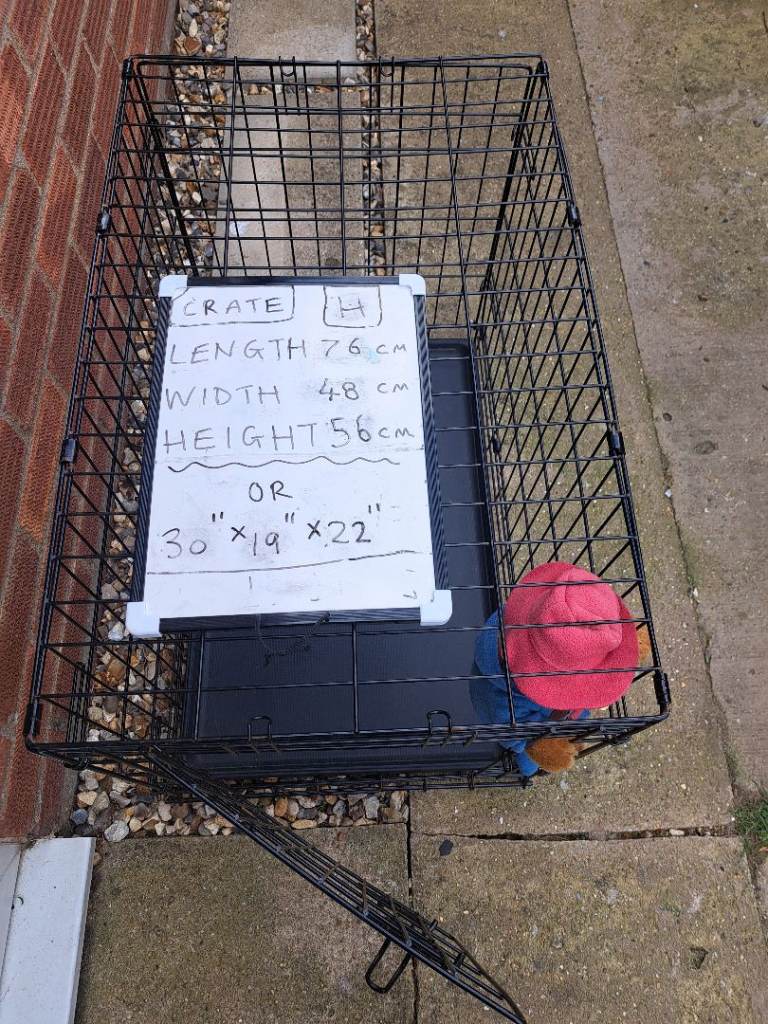 CRATE H
LENGTH 76 CM
WIDTH 48 CM
HEIGHT 56 CM
OR
30" x 19" x 22"